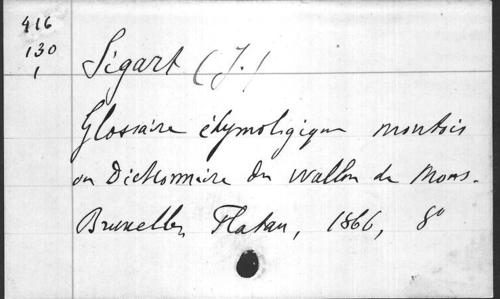 416
130
1
Sigart (J.)
Glossaire étymologique montois
ou Dictionnaire du wallon de Mons.
Bruxelles, Flatau, 1866, 8°